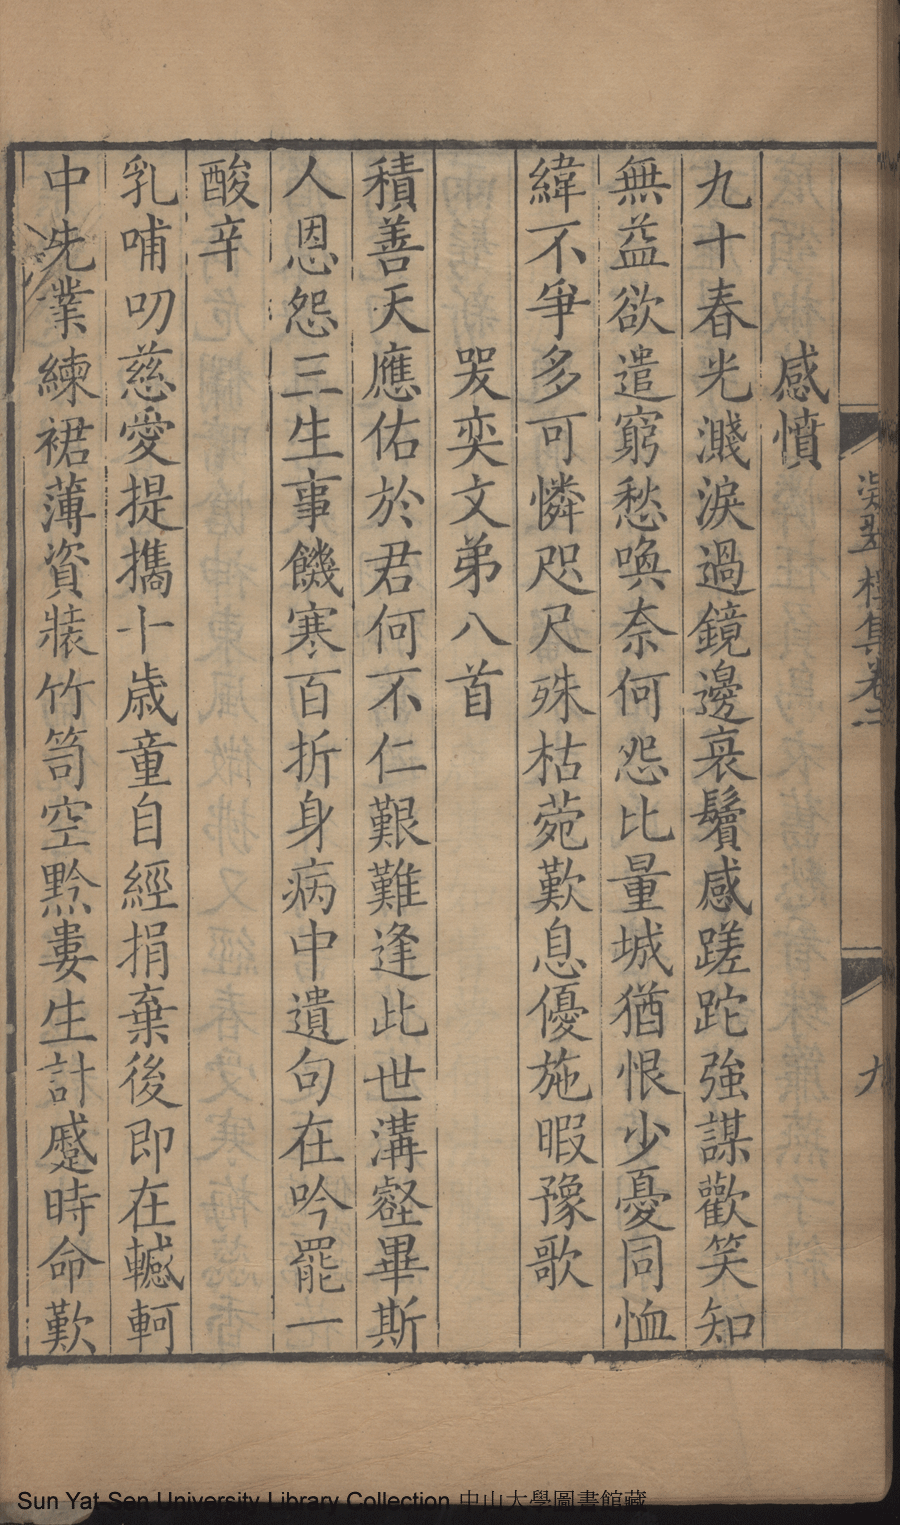 凝翠樓集卷二
九
感憤
九十春光濺淚過鏡邊衰鬢感蹉跎強謀歡笑知
無益欲遣窮愁喚奈何怨比量城猶恨少憂同恤
緯不爭多可憐咫尺殊枯菀歎息優施暇豫歌
哭奕文弟八首
積善天應佑於君何不仁艱難逢此世溝壑畢斯
人恩怨三生事饑寒百折身病中遺句在吟罷一
酸辛
乳哺叨慈愛提攜十歲童自經捐棄後即在轗軻
中先業練裙薄資裝竹笥空黔婁生計蹙時命歎
Sun Yat-Sen University Library Collection 中山大學圖書館藏